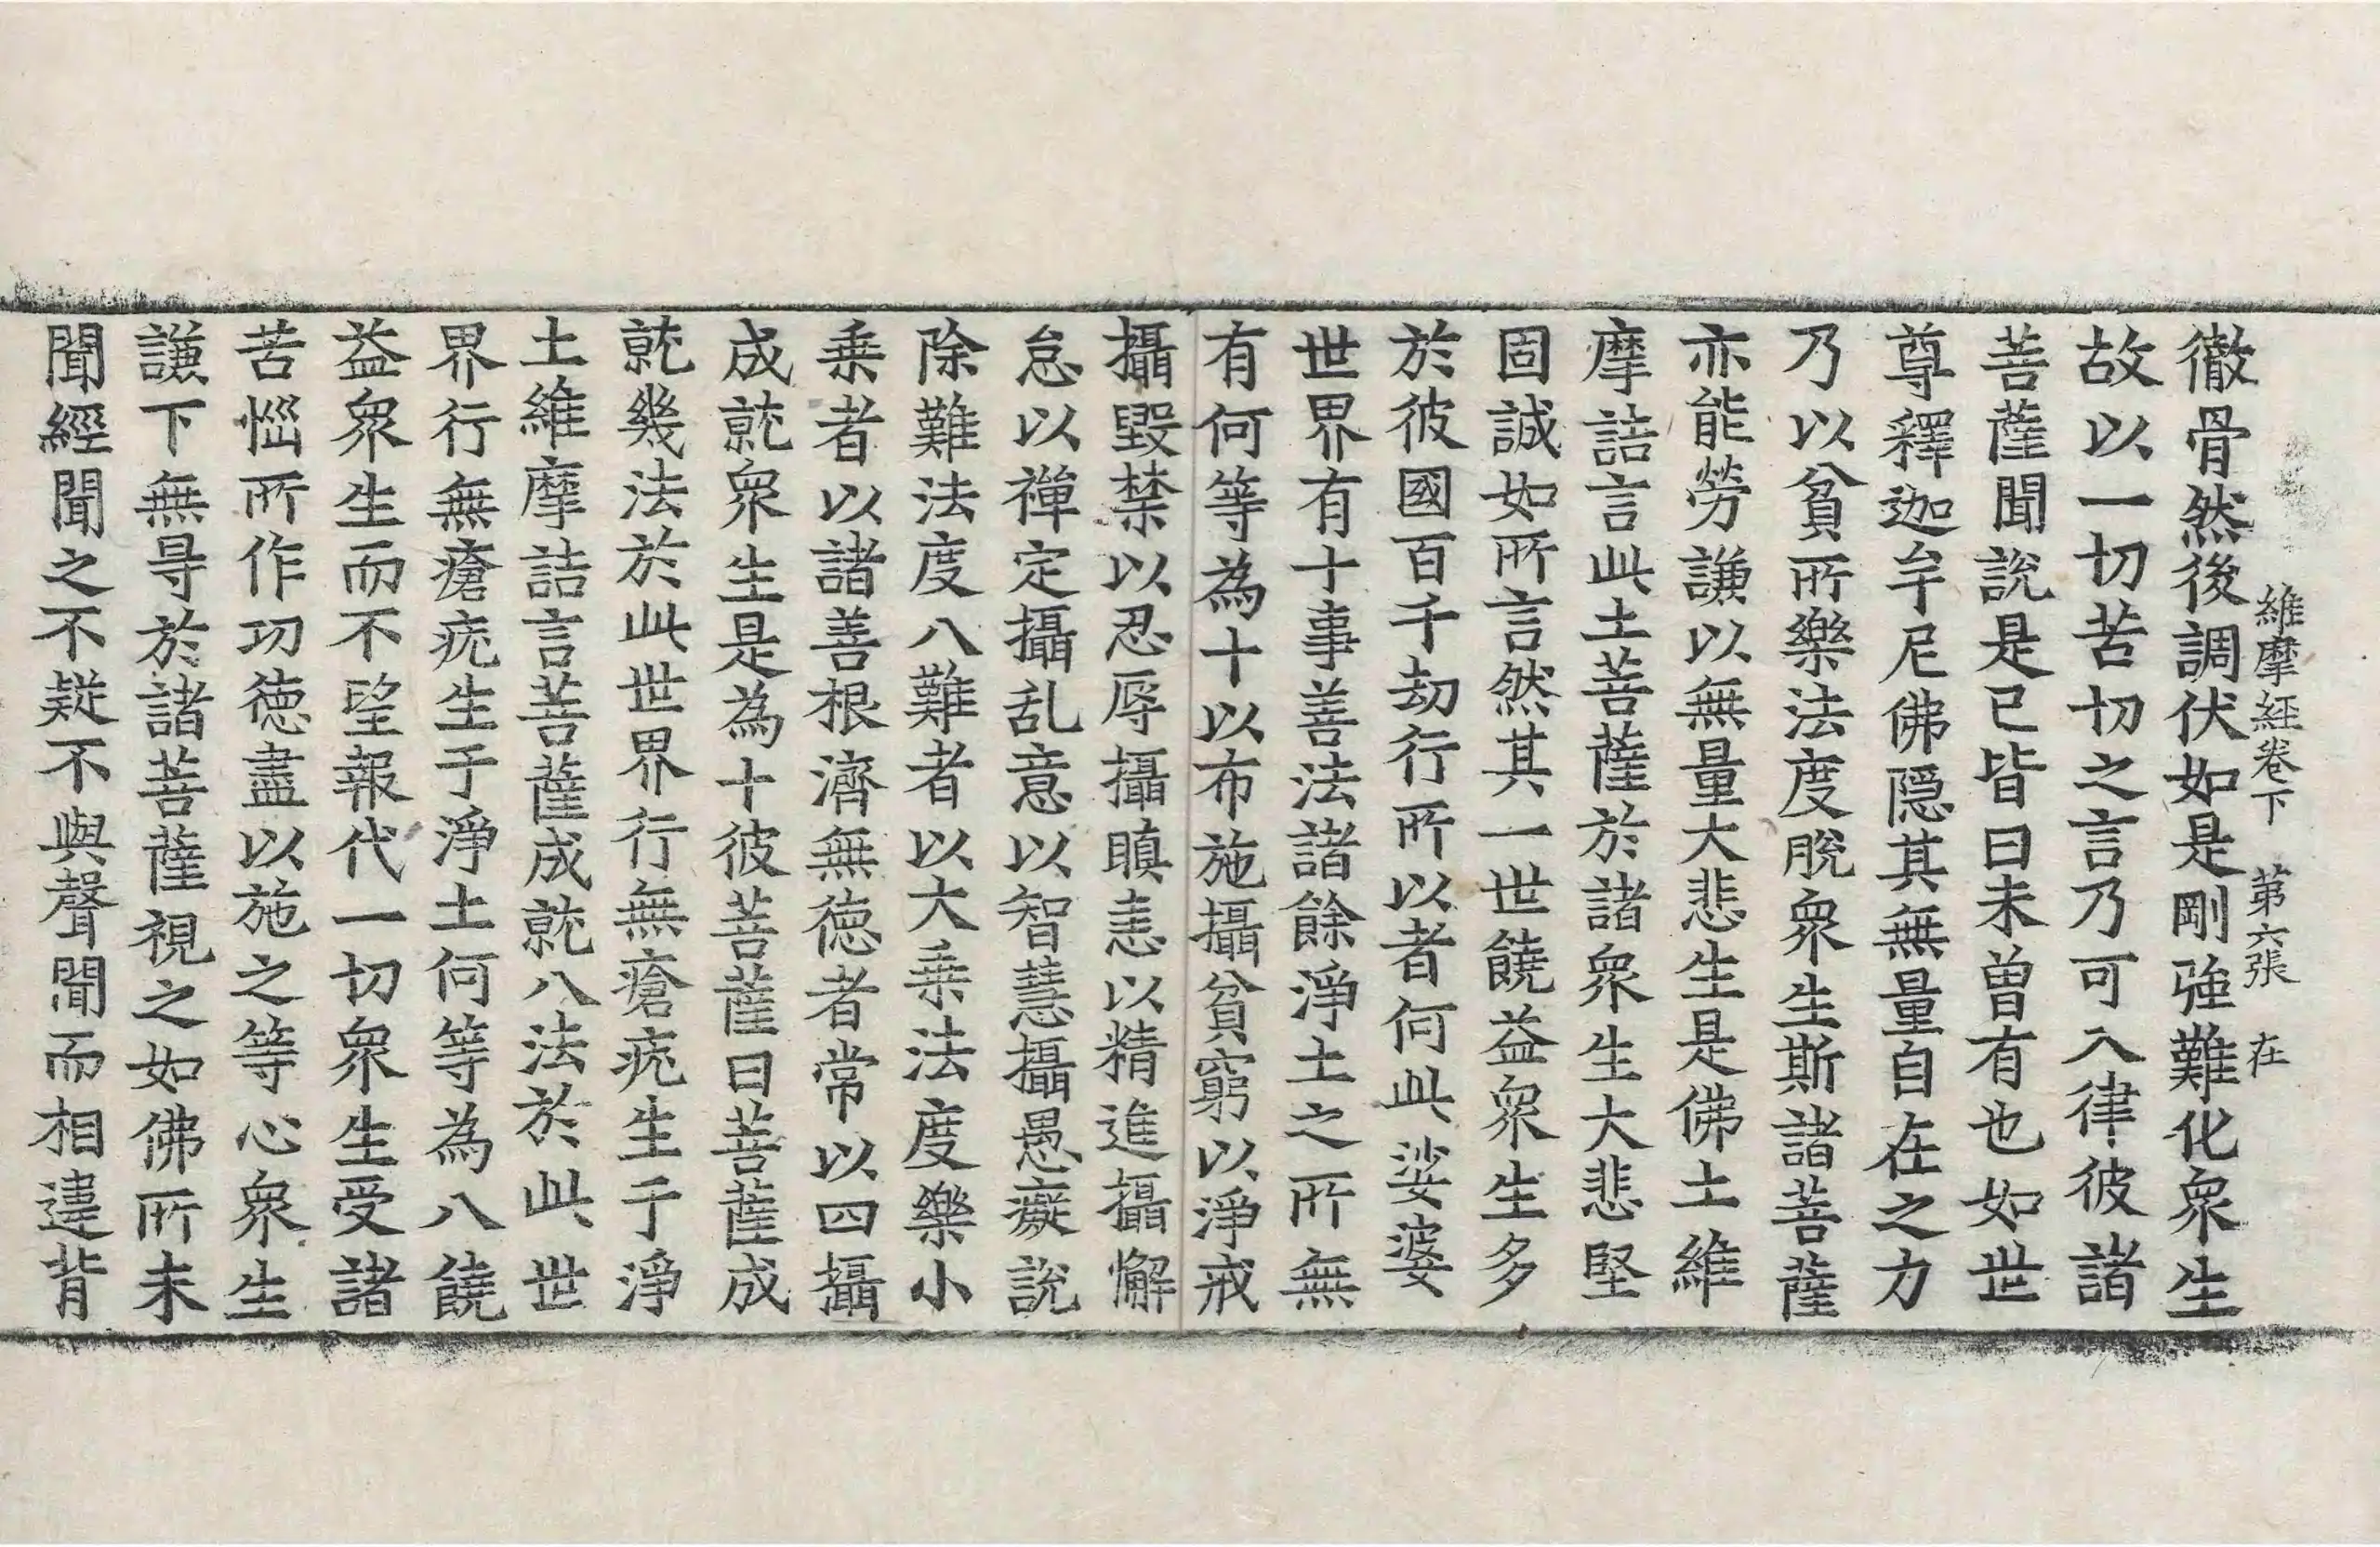 維摩経卷下 第六張 在
徹骨然後調伏如是剛強難化衆生
故以一切苦切之言乃可入律彼諸
菩薩聞説是已皆曰未曽有也如世
尊釋迦牟尼佛隠其無量自在之力
乃以貧所樂法度脱衆生斯諸菩薩
亦能勞謙以無量大悲生是佛土維
摩詰言此土菩薩於諸衆生大悲堅
固誠如所言然其一世饒益衆生多
於彼國百千劫行所以者何此娑婆
世界有十事善法諸餘淨土之所無
有何等為十以布施攝貧窮以淨戒
攝毀禁以忍辱攝瞋恚以精進攝懈
怠以禅定攝乱意以智慧攝愚癡説
除難法度八難者以大乗法度樂小
乗者以諸善根濟無徳者常以四攝
成就衆生是為十彼菩薩曰菩薩成
就幾法於此世界行無瘡疣生于淨
土維摩詰言菩薩成就八法於此世
界行無瘡疣生于淨土何等為八饒
益衆生而不望報代一切衆生受諸
苦惱所作功徳盡以施之等心衆生
謙下無㝵於諸菩薩視之如佛所未
聞經聞之不疑不與聲聞而相違背